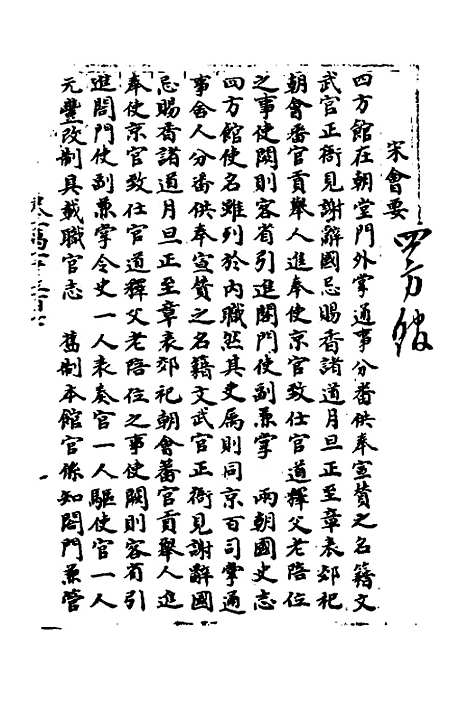 宋會要 四方館
四方館在朝堂門外掌通事分番供奉宣贊之名籍文
武官正衙見謝辭國忌賜香諸道月旦正至章表郊祀
朝會番官貢舉人進奉使京官致仕官道釋父老陪位
之事使闕則客省引進閤門使副兼掌 兩朝國史志
四方館使名雖列於內職然其吏屬則同京百司掌通
事舍人分番供奉宣贊之名籍文武官正衙見謝辭國
忌賜香諸道月旦正至章表郊祀朝會蕃官貢舉人進
奉使京官致仕官道釋父老陪位之事使闕則客省引
進閤門使副兼掌令史一人表奏官一人驅使官一人
元豐改制具載職官志 舊制本館官係知閤門兼管